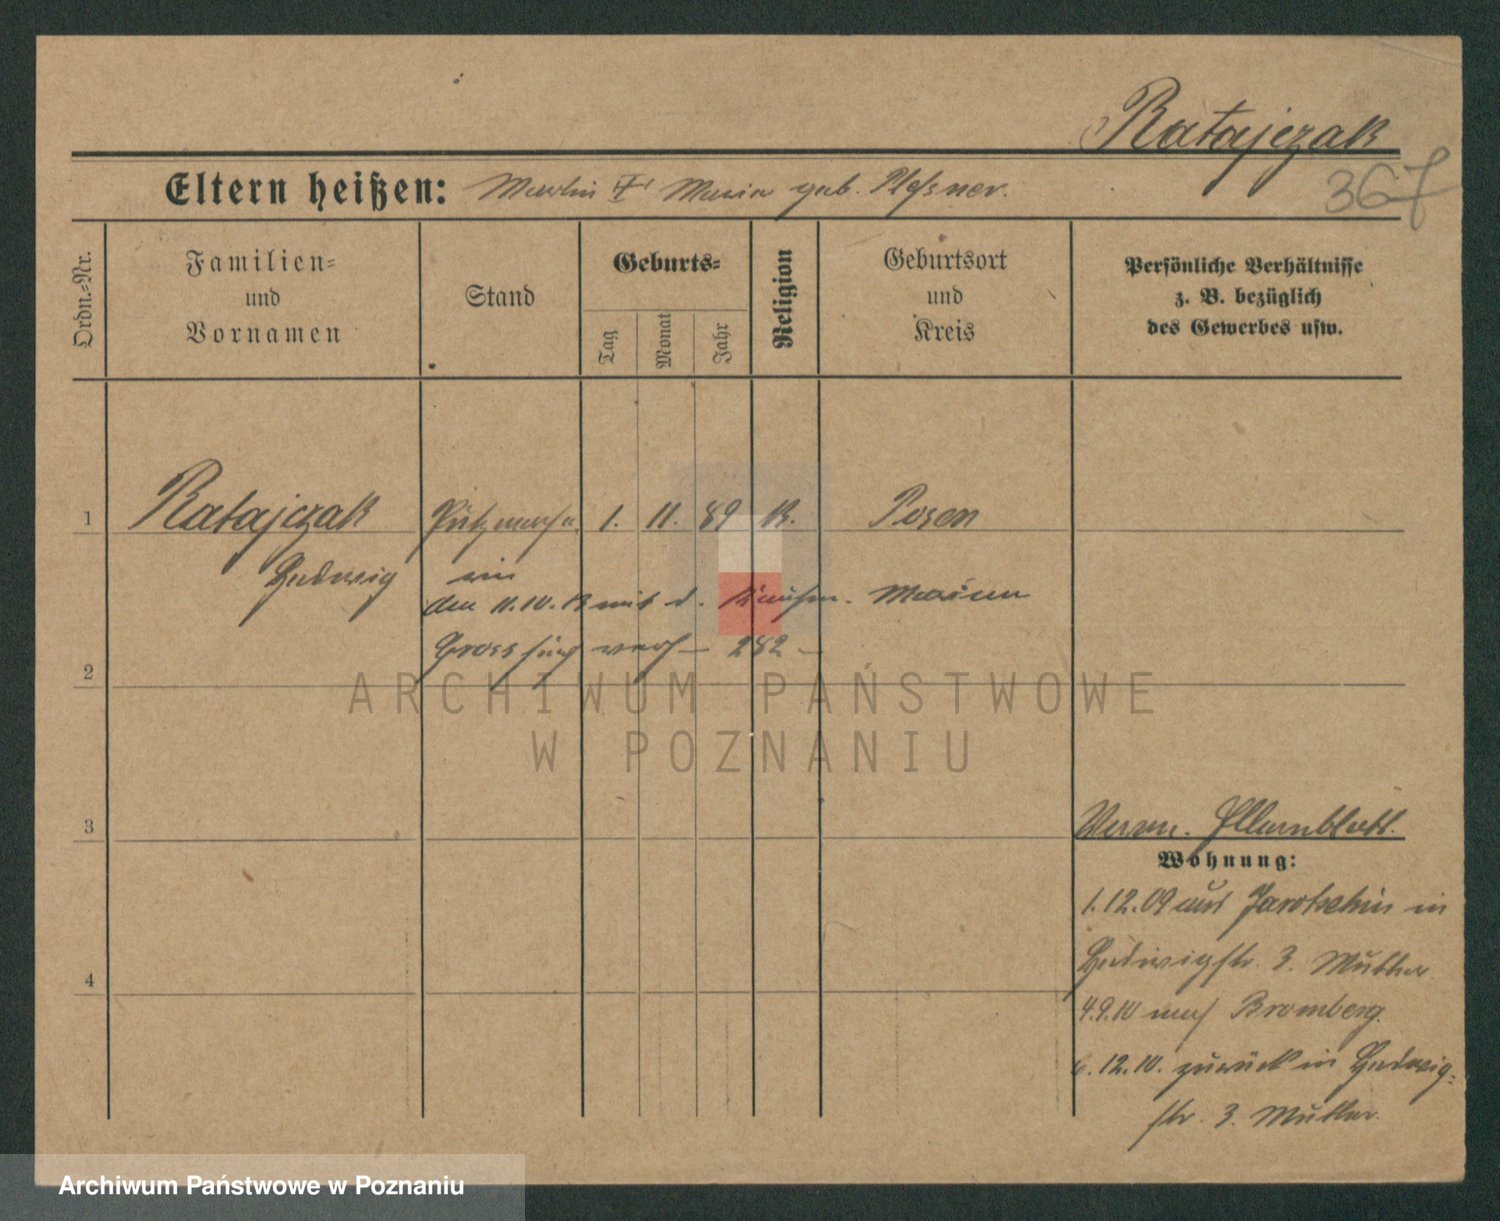 Ratajczak
367
Eltern heißen: Martin † Maria geb. Plessner.
Ordn.-Nr.
Familien-
und
Vornamen
Stand
Geburts-
Tag
Monat
Jahr
Religion
Geburtsort
und
Kreis
Persönliche Verhältnisse
z. B. bezüglich
des Gewerbes usw.
1 Ratajczak Putzmache 1. 11. 89 K. Posen
Hedwig rin
den 11.10.13 mit d. Kaufm.
verh — 282 —
2
ARCHIWUM PAŃSTWOWE
W POZNANIU
3
Verm. Elternblatt.
Wohnung:
1.12.09 aus Jarotschin in
Hedwigstr. 3. Mutter.
4
4.9.10 nach Bromberg.
6.12.10. zurück in Hedwig-
str. 3. Mutter.
Archiwum Państwowe w Poznaniu